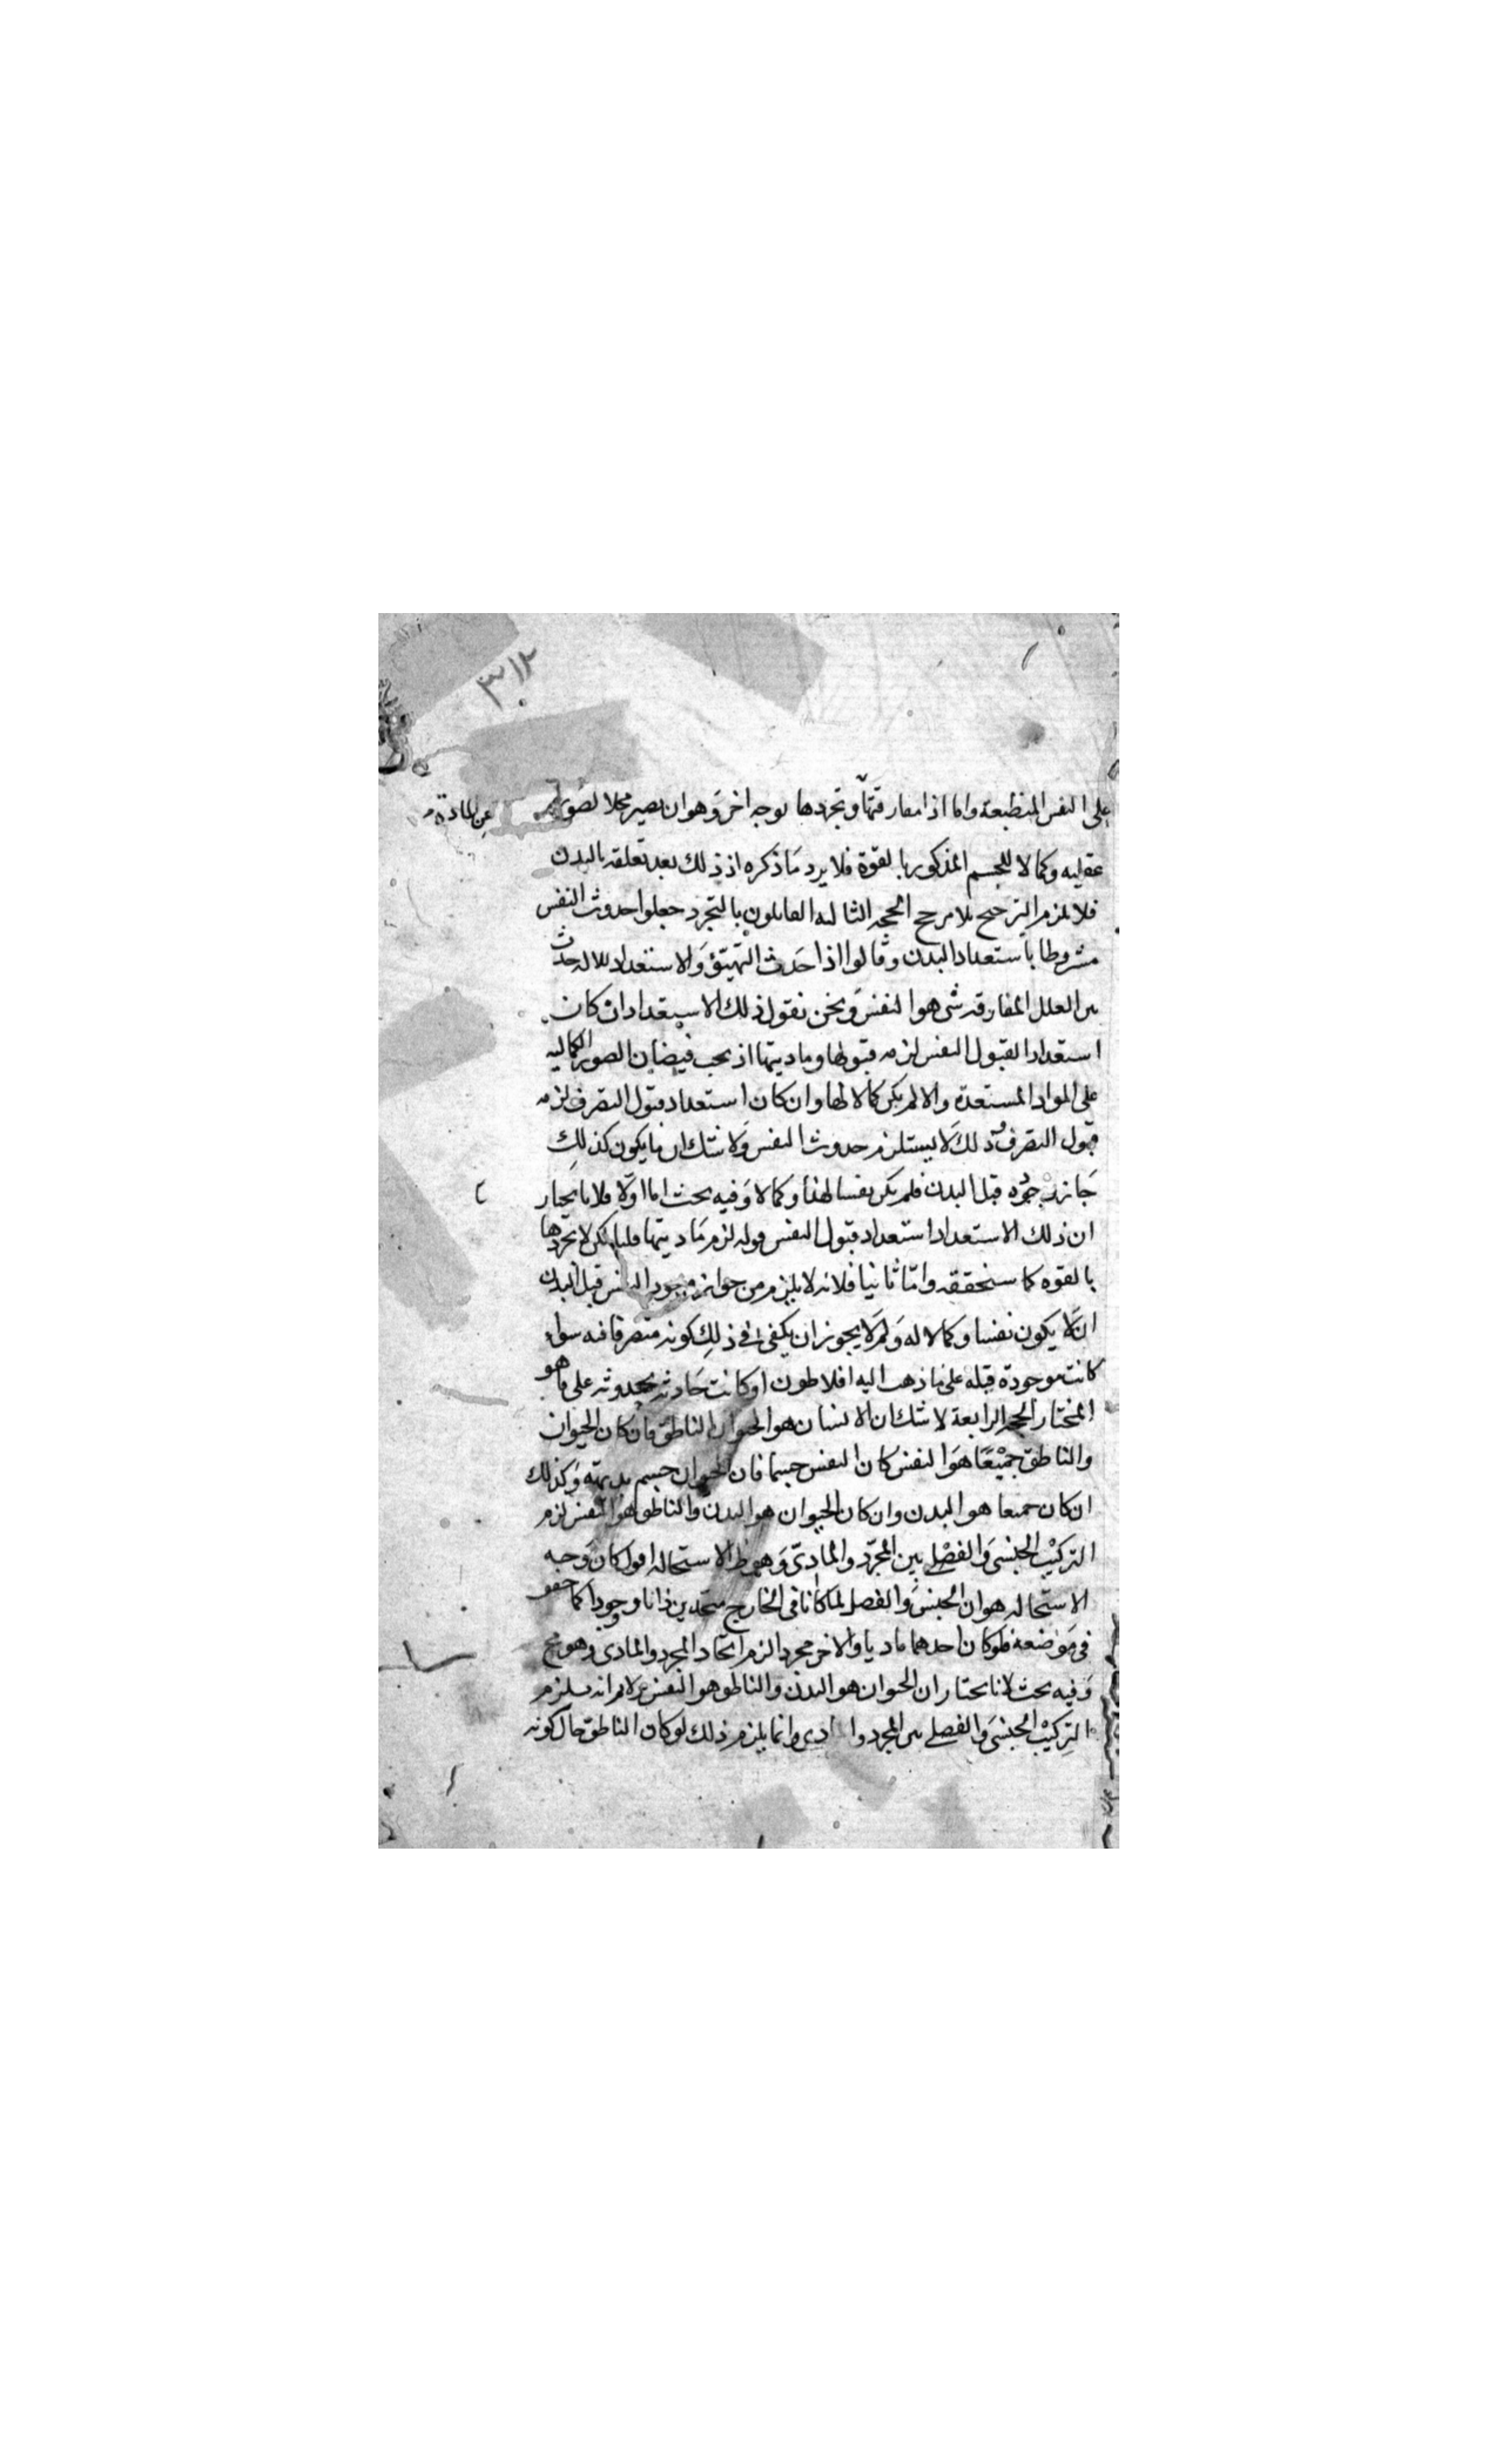 ٣١٢
على النفس المنطبعة واما اذا مفارقتها وتجردها بوجه اخر وهو ان يصير محلا لصور
عن المادة
عقليه وكمالا للجسم المذكور بالقوة فلا يرد ما ذكره اذ ذلك بعد تعلقه بالبدن
فلا يلزم الترجيح بلا مرجح الحجه الثالثه القايلون بالتجرد جعلوا حدوث النفس
مشروطا باستعداد البدن وقالوا اذا حدث التهيّؤ والاستعداد للاله حدث
من العلل المفارقه شى هو النفس ونحن نقول ذلك الاستعداد ان كان
استعدادا لقبول النفس لزمه قبولها وماديتها اذ يجب فيضان الصور الكماليه
على المواد المستعدة والا لم يكن كمالا لها وان كان استعداد قبول التصرف لزمه
قبول التصرف وذلك لا يستلزم حدوث النفس ولا شك ان ما يكون كذلك
جاز وجوده قبل البدن فلم يكن نفسا لهذا وكمالا وفيه بحث اما اولا فلانا نختار
ان ذلك الاستعداد استعداد قبول النفس قوله لزم ماديتها قلنا لكن لا تجردها
بالقوه كما سنحققه واما ثانيا فلانه لا يلزم من جواز وجود النفس قبل البدن
ان لا يكون نفسا وكمالا له ولم لا يجوز ان يكفى فى ذلك كونه متصرفا فيه سواء
كانت موجودة قبله على ما ذهب اليه افلاطون او كانت حادثه بحدوثه على ما هو
المختار الحجه الرابعة لا شك ان الانسان هو الحيوان الناطق فان كان الحيوان
والناطق جميعا هو النفس كان النفس جسما فان الحيوان جسم بديهته وكذلك
ان كان جميعا هو البدن وان كان الحيوان هو البدن والناطق هو النفس لزم
التركيب الجنسى والفصلى بين المجرد والمادى وهو ظ الاستحاله اقول كان وجه
الاستحاله هو ان الجنس والفصل لما كانا فى الخارج متحدين ذاتا ووجودا كما حقق
فى موضعه فلو كان احدهما ماديا والاخر مجردا لزم اتحاد المجرد والمادى وهو مح
وفيه بحث لانا نختار ان الحيوان هو البدن والناطق هو النفس ولانم انه يلزم
التركيب الجنسى والفصلى بين المجرد والمادى وانما يلزم ذلك لو كان الناطق حال كونه